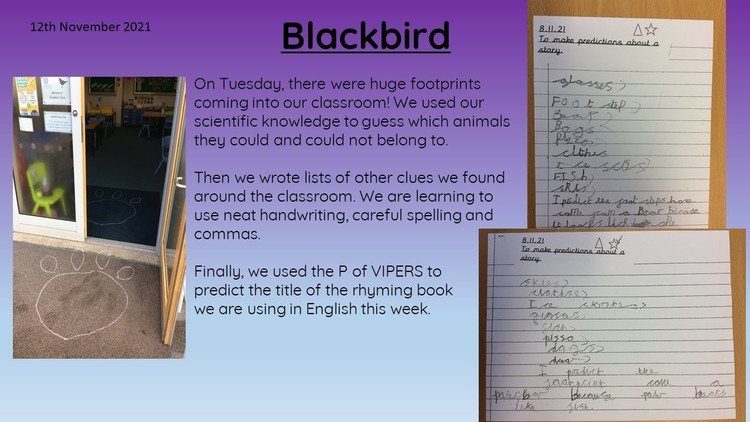 12th November 2021
Blackbird
On Tuesday, there were huge footprints
coming into our classroom! We used our
scientific knowledge to guess which animals
they could and could not belong to.
Then we wrote lists of other clues we found
around the classroom. We are learning to
use neat handwriting, careful spelling and
commas.
Finally, we used the P of VIPERS to
predict the title of the rhyming book
we are using in English this week.
8.11.21
To make predictions about a
story.
glasses,
Foot step,
Bear,
FISh,
skis,
I predict the foot steps have
from a Bear because
it looks like
8.11.21
To make predictions about a
story.
I predict the
footprint
because paw
like fish.